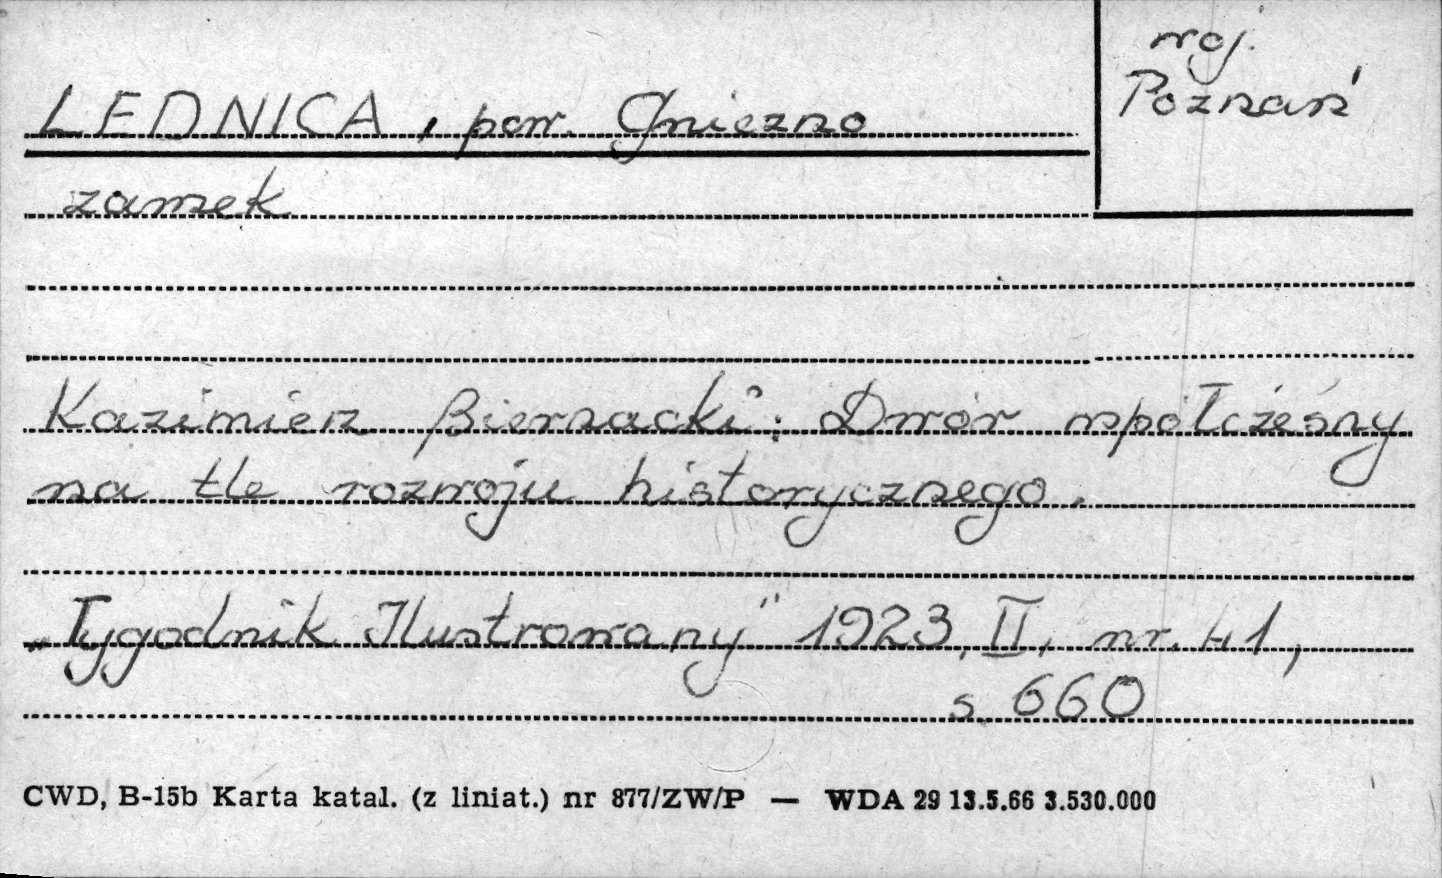 woj.
Poznań
LEDNICA, pow. Gniezno
zamek
Kazimierz Biernacki: Dwór współczesny
na tle rozwoju historycznego.
„Tygodnik Ilustrowany” 1923, II, nr. 41,
s. 660
CWD, B-15b Karta katal. (z liniat.) nr 877/ZW/P — WDA 29 13.5.66 3.530.000